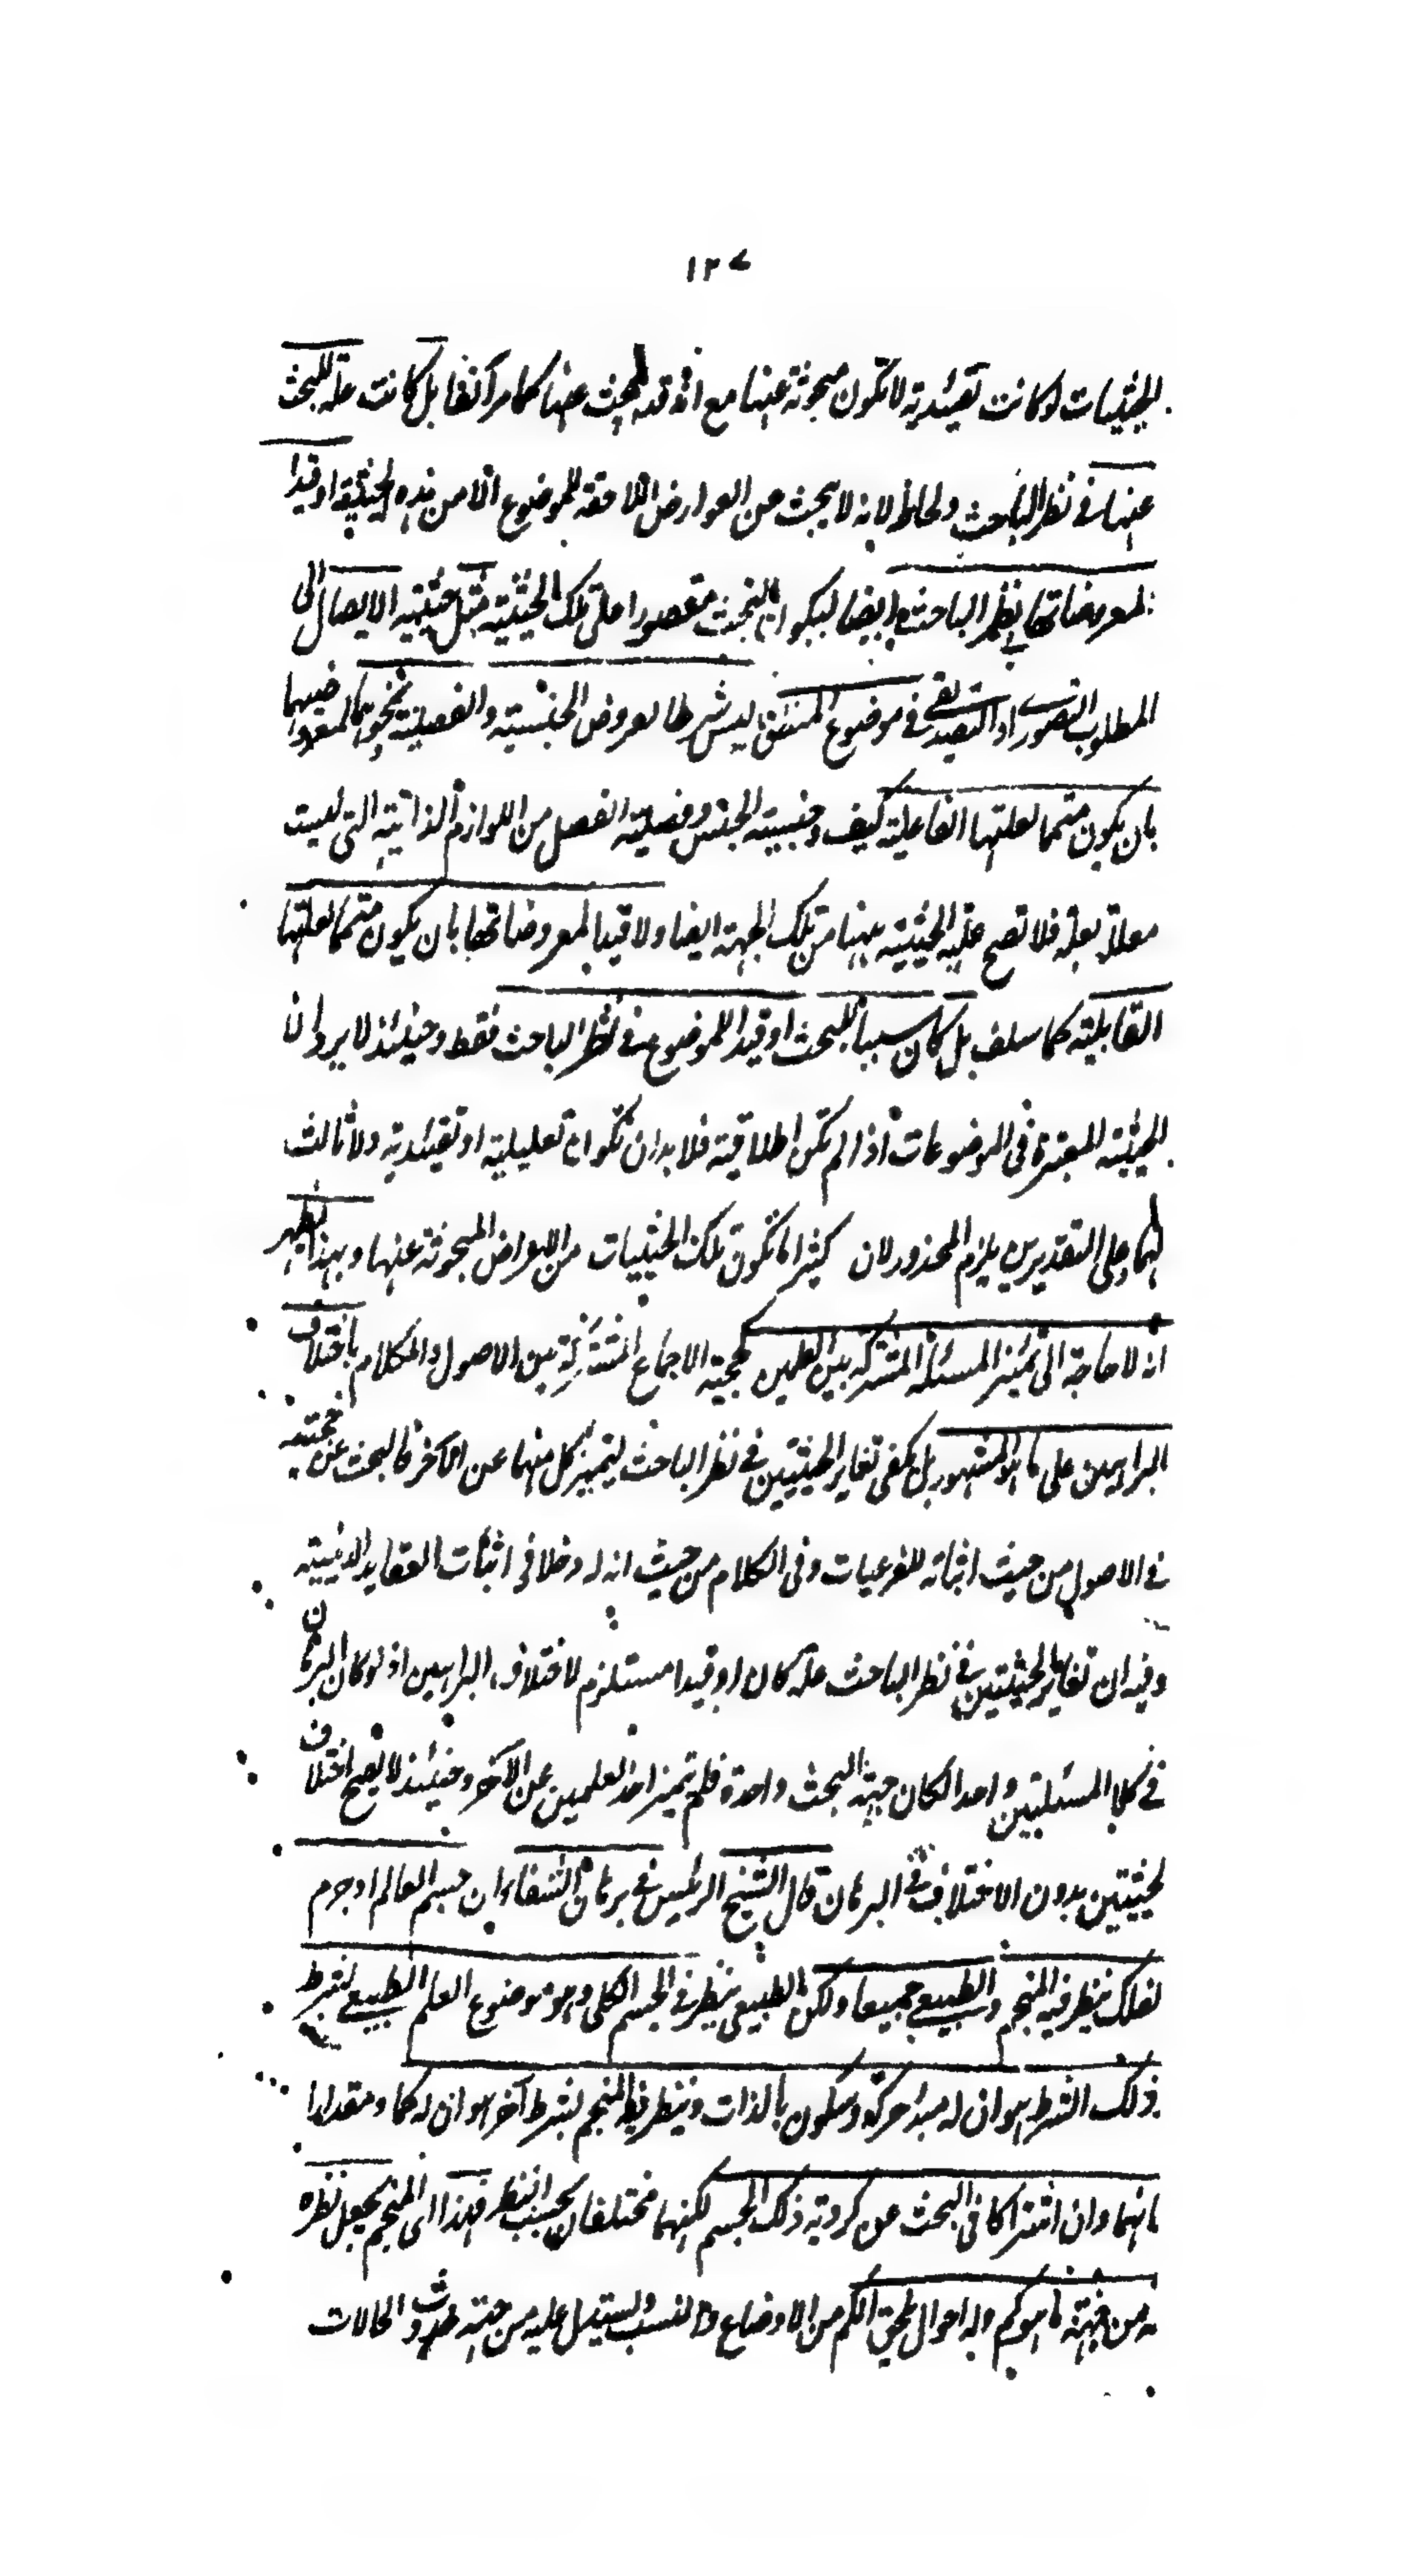 ١٢٧
الحيثيات لو كانت تقييدية لا تكون مبحوثة عنها مع انه قد يبحث عنها كما مر آنفا بل كانت علة للبحث
عنها في نظر الباحث ولحاظه لانه لا يبحث عن العوارض اللاحقة للموضوع الا من هذه الحيثية او قيدا
لمعروضاتها في نظر الباحث ايضا ليكون البحث مقصورا على تلك الحيثية مثل حيثية الايصال الى
المطلوب التصوري او التصديقي في موضوع المنطق ليس شرطا لعروض الجنسية والفصلية ونحوهما لمعروضيهما
بان يكون متمما لعلتها الفاعلية كيف وجنسية الجنس وفصلية الفصل من اللوازم الذاتية التي ليست
معللة بعلة فلا تصح علية الحيثية ههنا من تلك الجهة ايضا ولا قيدا لمعروضاتها بان يكون متمما لعلتها
القابلية كما سلف بل كان سببا للبحث او قيدا للموضوع في نظر الباحث فقط وحينئذ لا يرد ان
الحيثية المعتبرة في الموضوعات اذا لم تكن اطلاقية فلا بد ان تكون تعليلية او تقييدية ولا ثالث
لهما وعلى التقديرين يلزم المحذور لان كثيرا ما تكون تلك الحيثيات من الاعراض المبحوثة عنها وبهذا يظهر
انه لا حاجة الى تميز المسئلة المشتركة بين العلمين كحجية الاجماع المشتركة بين الاصول والكلام باختلاف
البراهين على ما هو المشهور بل يكفي تغاير الحيثيتين في نظر الباحث ليتميز كل منهما عن الآخر فالبحث عن حجيته
في الاصول من حيث اثباته للفرعيات وفي الكلام من حيث انه له دخلا في اثبات العقايد الدينية
وفيه ان تغاير الحيثيتين في نظر الباحث علة كان او قيدا مستلزم لاختلاف البراهين اذ لو كان البرهان
في كلا المسئلتين واحدا لكان جهة البحث واحدة فلم تميز احد العلمين عن الآخر وحينئذ لا يصح اختلاف
الحيثيتين بدون الاختلاف في البرهان قال الشيخ الرئيس في برهان الشفاء ان جسم العالم او جرم
الفلك ينظر فيه المنجم والطبيعي جميعا ولكن الطبيعي ينظر في الجسم الكلي وهو موضوع العلم الطبيعي بشرط
وذلك الشرط هو ان له مبدء حركة وسكون بالذات وينظر فيه المنجم بشرط آخر هو ان له كما ومقدارا
فانهما وان اشتركا في البحث عن كروية ذلك الجسم لكنهما مختلفان بحسب النظر فهذا اي المنجم يجعل نظره
فيه من جهة ما هو كم وله احوال تلحق الكم من الاوضاع والنسب ويستدل عليه من جهة حدوث الحالات